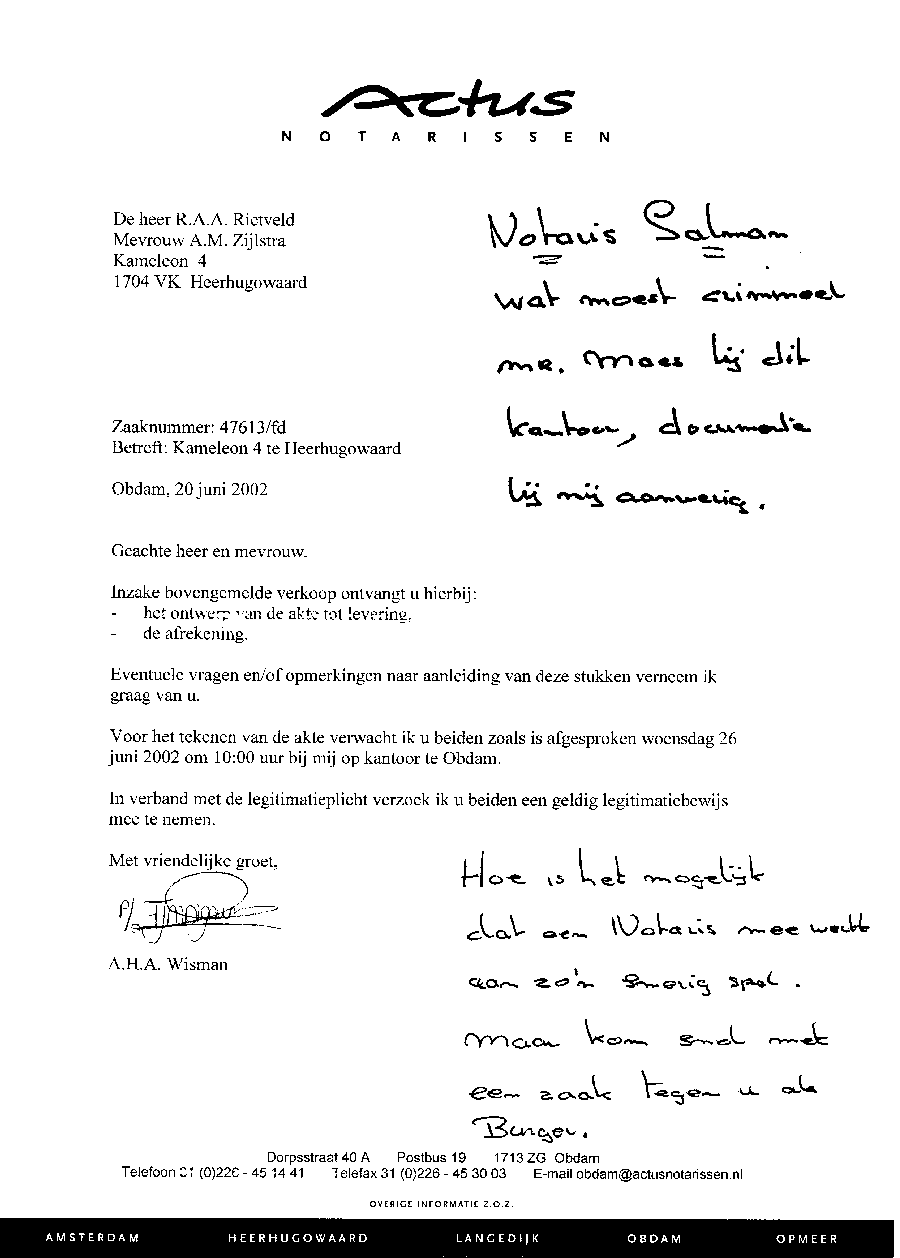 Actus
NOTARISSEN
De heer R.A.A. Rietveld
Mevrouw A.M. Zijlstra
Kameleon 4
1704 VK Heerhugowaard
Notaris Salman
wat moest crimineel
mr. Maes bij dit
kantoor, documentie
bij mij aanwezig.
Zaaknummer: 47613/fd
Betreft: Kameleon 4 te Heerhugowaard
Obdam, 20 juni 2002
Geachte heer en mevrouw,
Inzake bovengemelde verkoop ontvangt u hierbij:
- het ontwerp van de akte tot levering,
- de afrekening.
Eventuele vragen en/of opmerkingen naar aanleiding van deze stukken verneem ik
graag van u.
Voor het tekenen van de akte verwacht ik u beiden zoals is afgesproken woensdag 26
juni 2002 om 10:00 uur bij mij op kantoor te Obdam.
In verband met de legitimatieplicht verzoek ik u beiden een geldig legitimatiebewijs
mee te nemen.
Met vriendelijke groet,
P/
A.H.A. Wisman
Hoe is het mogelijk
dat een Notaris mee werkt
aan zo'n smerig spel.
Maar kom snel met
een zaak tegen u als
Burger.
Dorpsstraat 40 A Postbus 19 1713 ZG Obdam
Telefoon 31 (0)226 - 45 14 41 Telefax 31 (0)226 - 45 30 03 E-mail obdam@actusnotarissen.nl
OVERIGE INFORMATIE Z.O.Z.
AMSTERDAM HEERHUGOWAARD LANGEDIJK OBDAM OPMEER